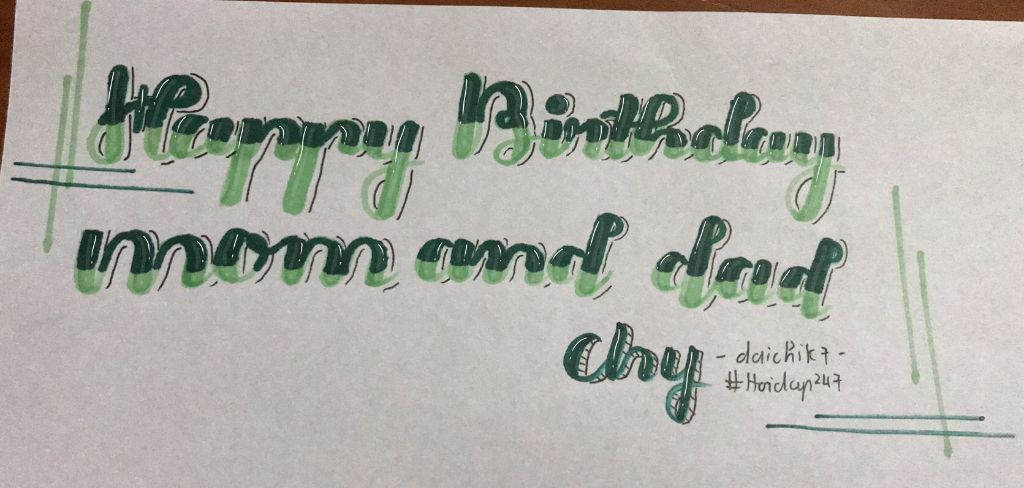 Happy Birthday
mom and dad
Chy
- daichik7 -
#Hoidap247